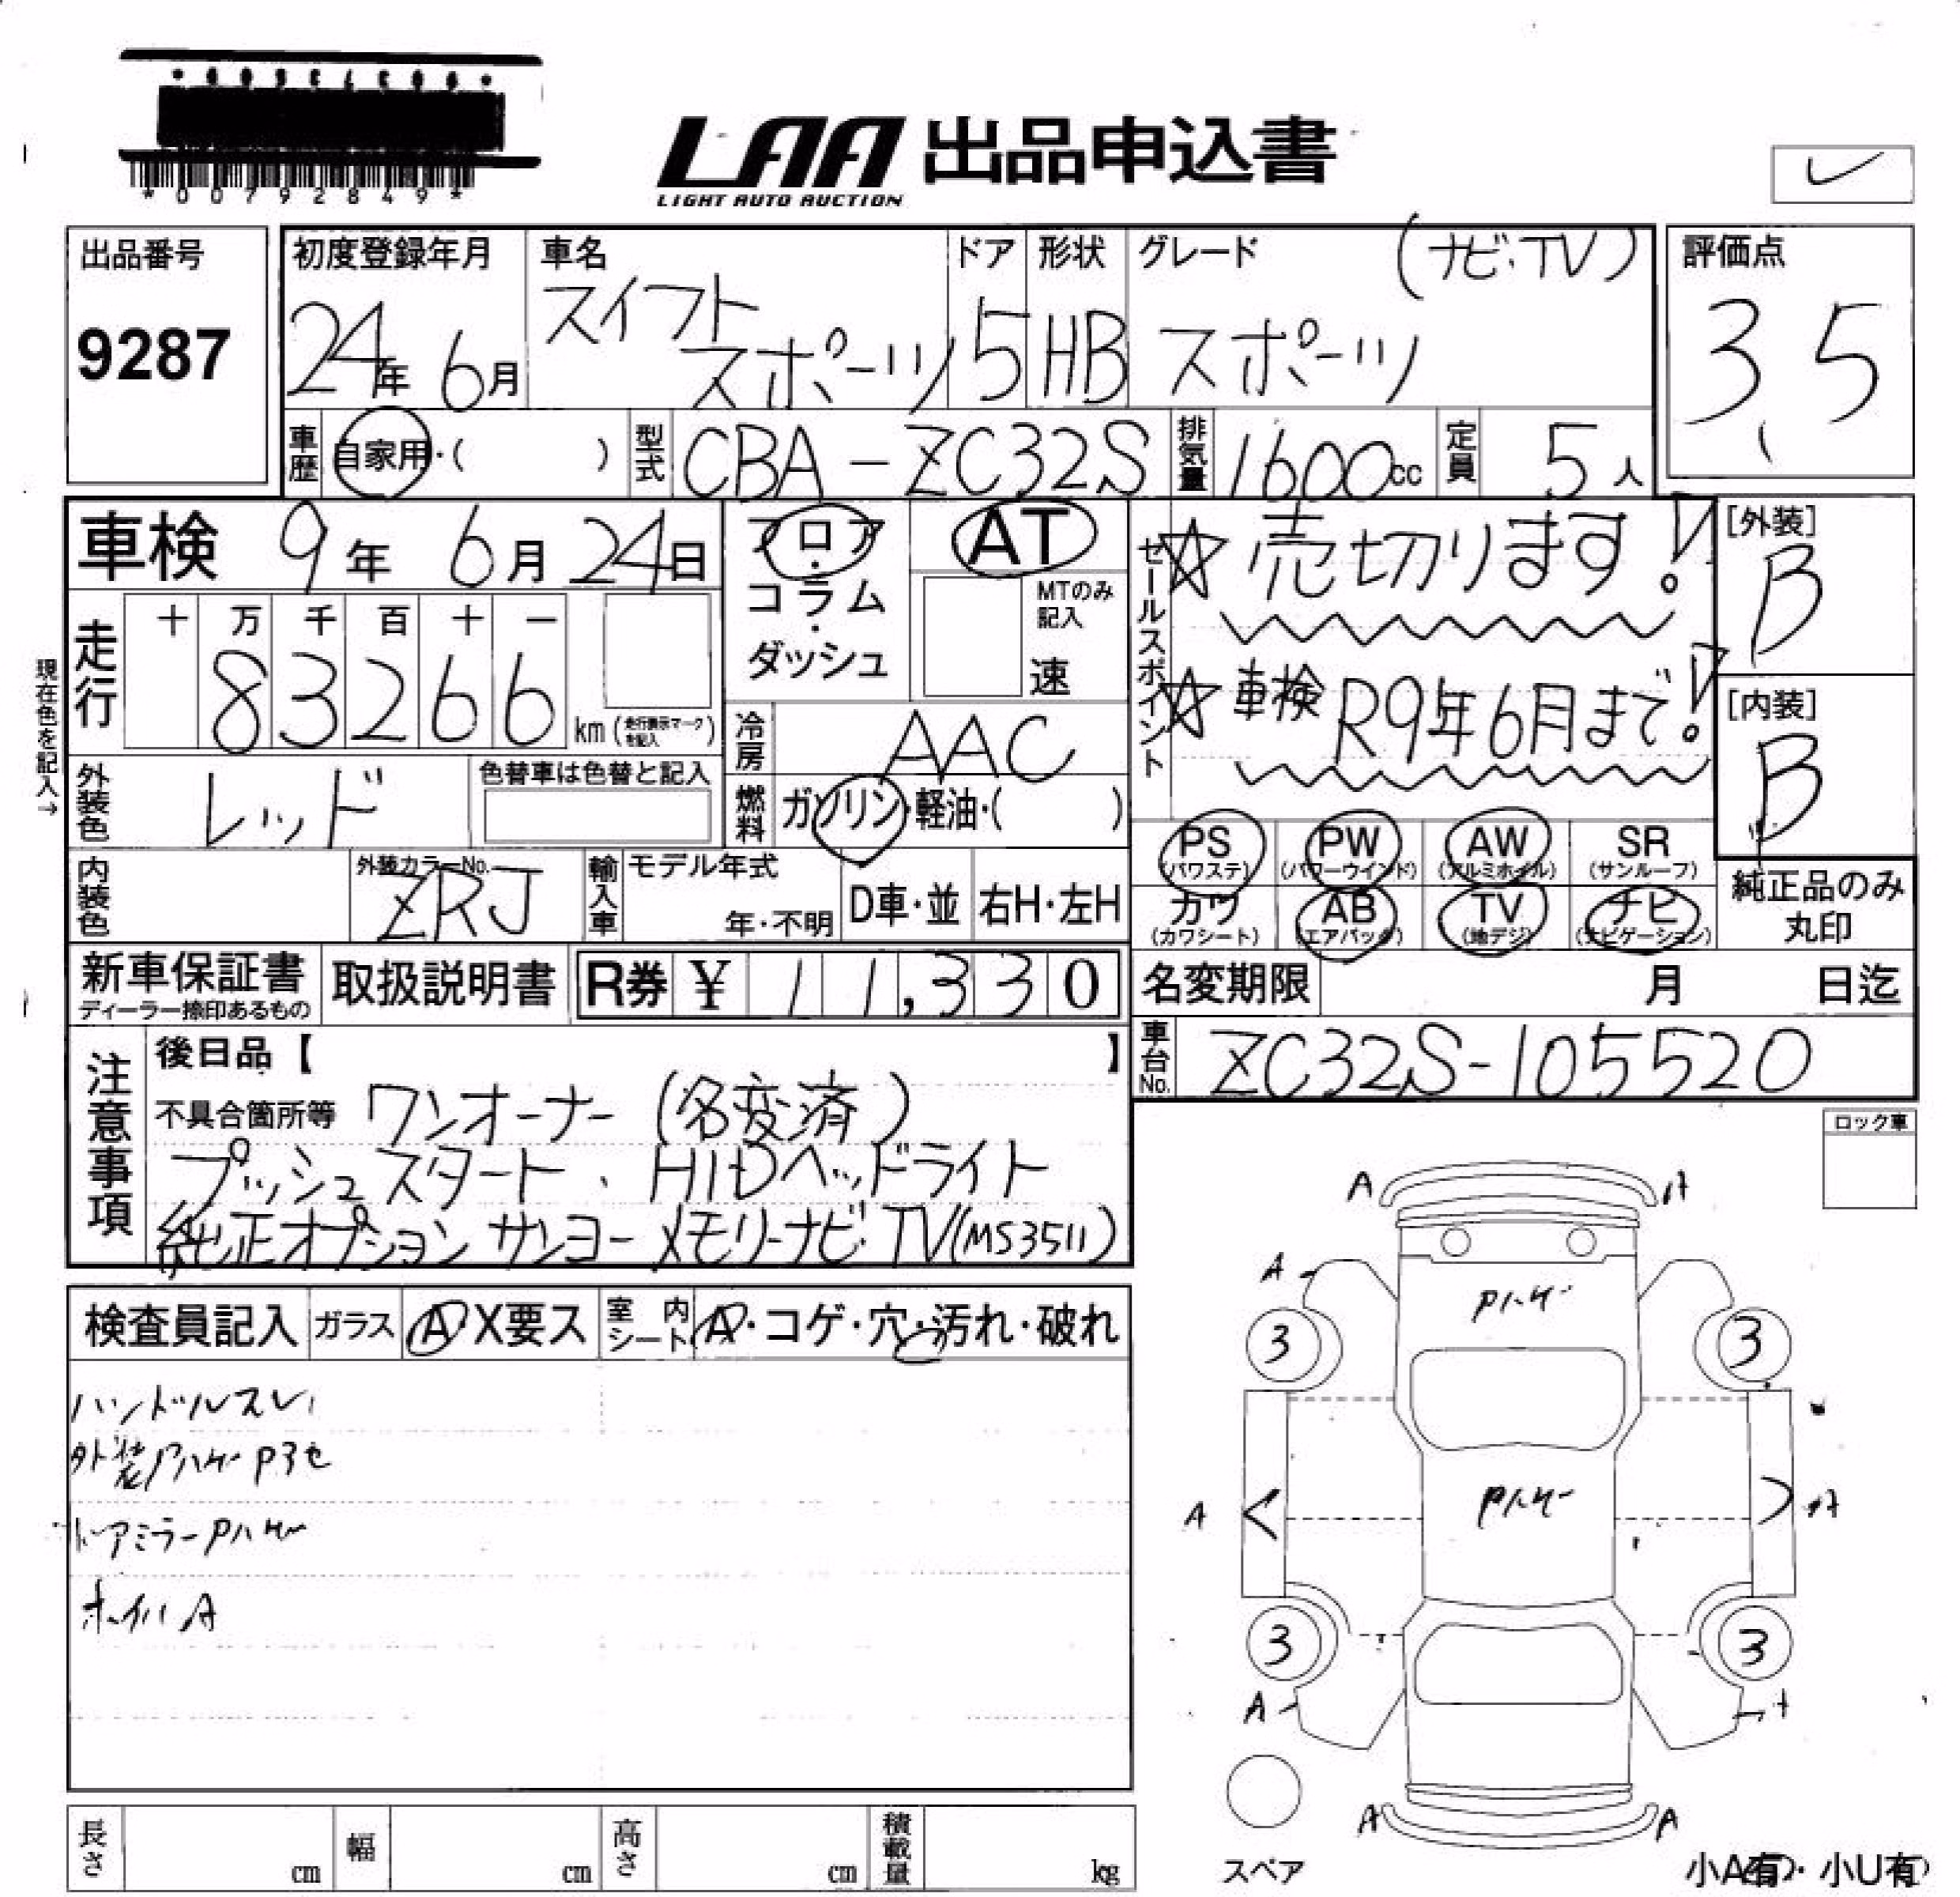 *00792849*
LAA 出品申込書
LIGHT AUTO AUCTION
出品番号
9287
初度登録年月
24年 6月
車名
スイフト
スポーツ
ドア
5
形状
HB
グレード
(ナビ・TV)
スポーツ
評価点
3.5
車歴
自家用・( )
型式
CBA-ZC32S
排気量
1600cc
定員
5人
車検 9年 6月 24日
フロア
・
コラム
・
ダッシュ
AT
MTのみ
記入
速
セールスポイント
☆売切ります!
☆車検R9年6月まで!
[外装]
B
[内装]
B
現在色を記入→
走行
十 万 千 百 十 一
83266
km(走行表示マークを記入)
冷房
AAC
外装色
レッド
色替車は色替と記入
燃料
ガソリン・軽油・( )
PS
(パワステ)
PW
(パワーウインド)
AW
(アルミホイル)
SR
(サンルーフ)
カワ
(カワシート)
AB
(エアバック)
TV
(地デジ)
ナビ
(ナビゲーション)
純正品のみ
丸印
内装色
外装カラーNo.
ZRJ
輸入車
モデル年式
年・不明
D車・並
右H・左H
新車保証書
ディーラー捺印あるもの
取扱説明書
R券 ¥ 11,330
名変期限 月 日迄
車台No.
ZC32S-105520
注意事項
後日品【 】
不具合箇所等 ワンオーナー(名変済)
プッシュスタート、HIDヘッドライト
純正オプションサンヨーメモリーナビ・TV(MS3511)
ロック車
検査員記入
ガラス
A X要ス
室内シート
A・コゲ・穴・汚れ・破れ
ハンドルスレ
外装Pハゲ P3セ
ドアミラーPハゲ
ホイルA
A A
A
Pハゲ
3 3
A
Pハゲ
A
3 3
A
A A
スペア
小A有・小U有
長さ cm
幅 cm
高さ cm
積載量 kg